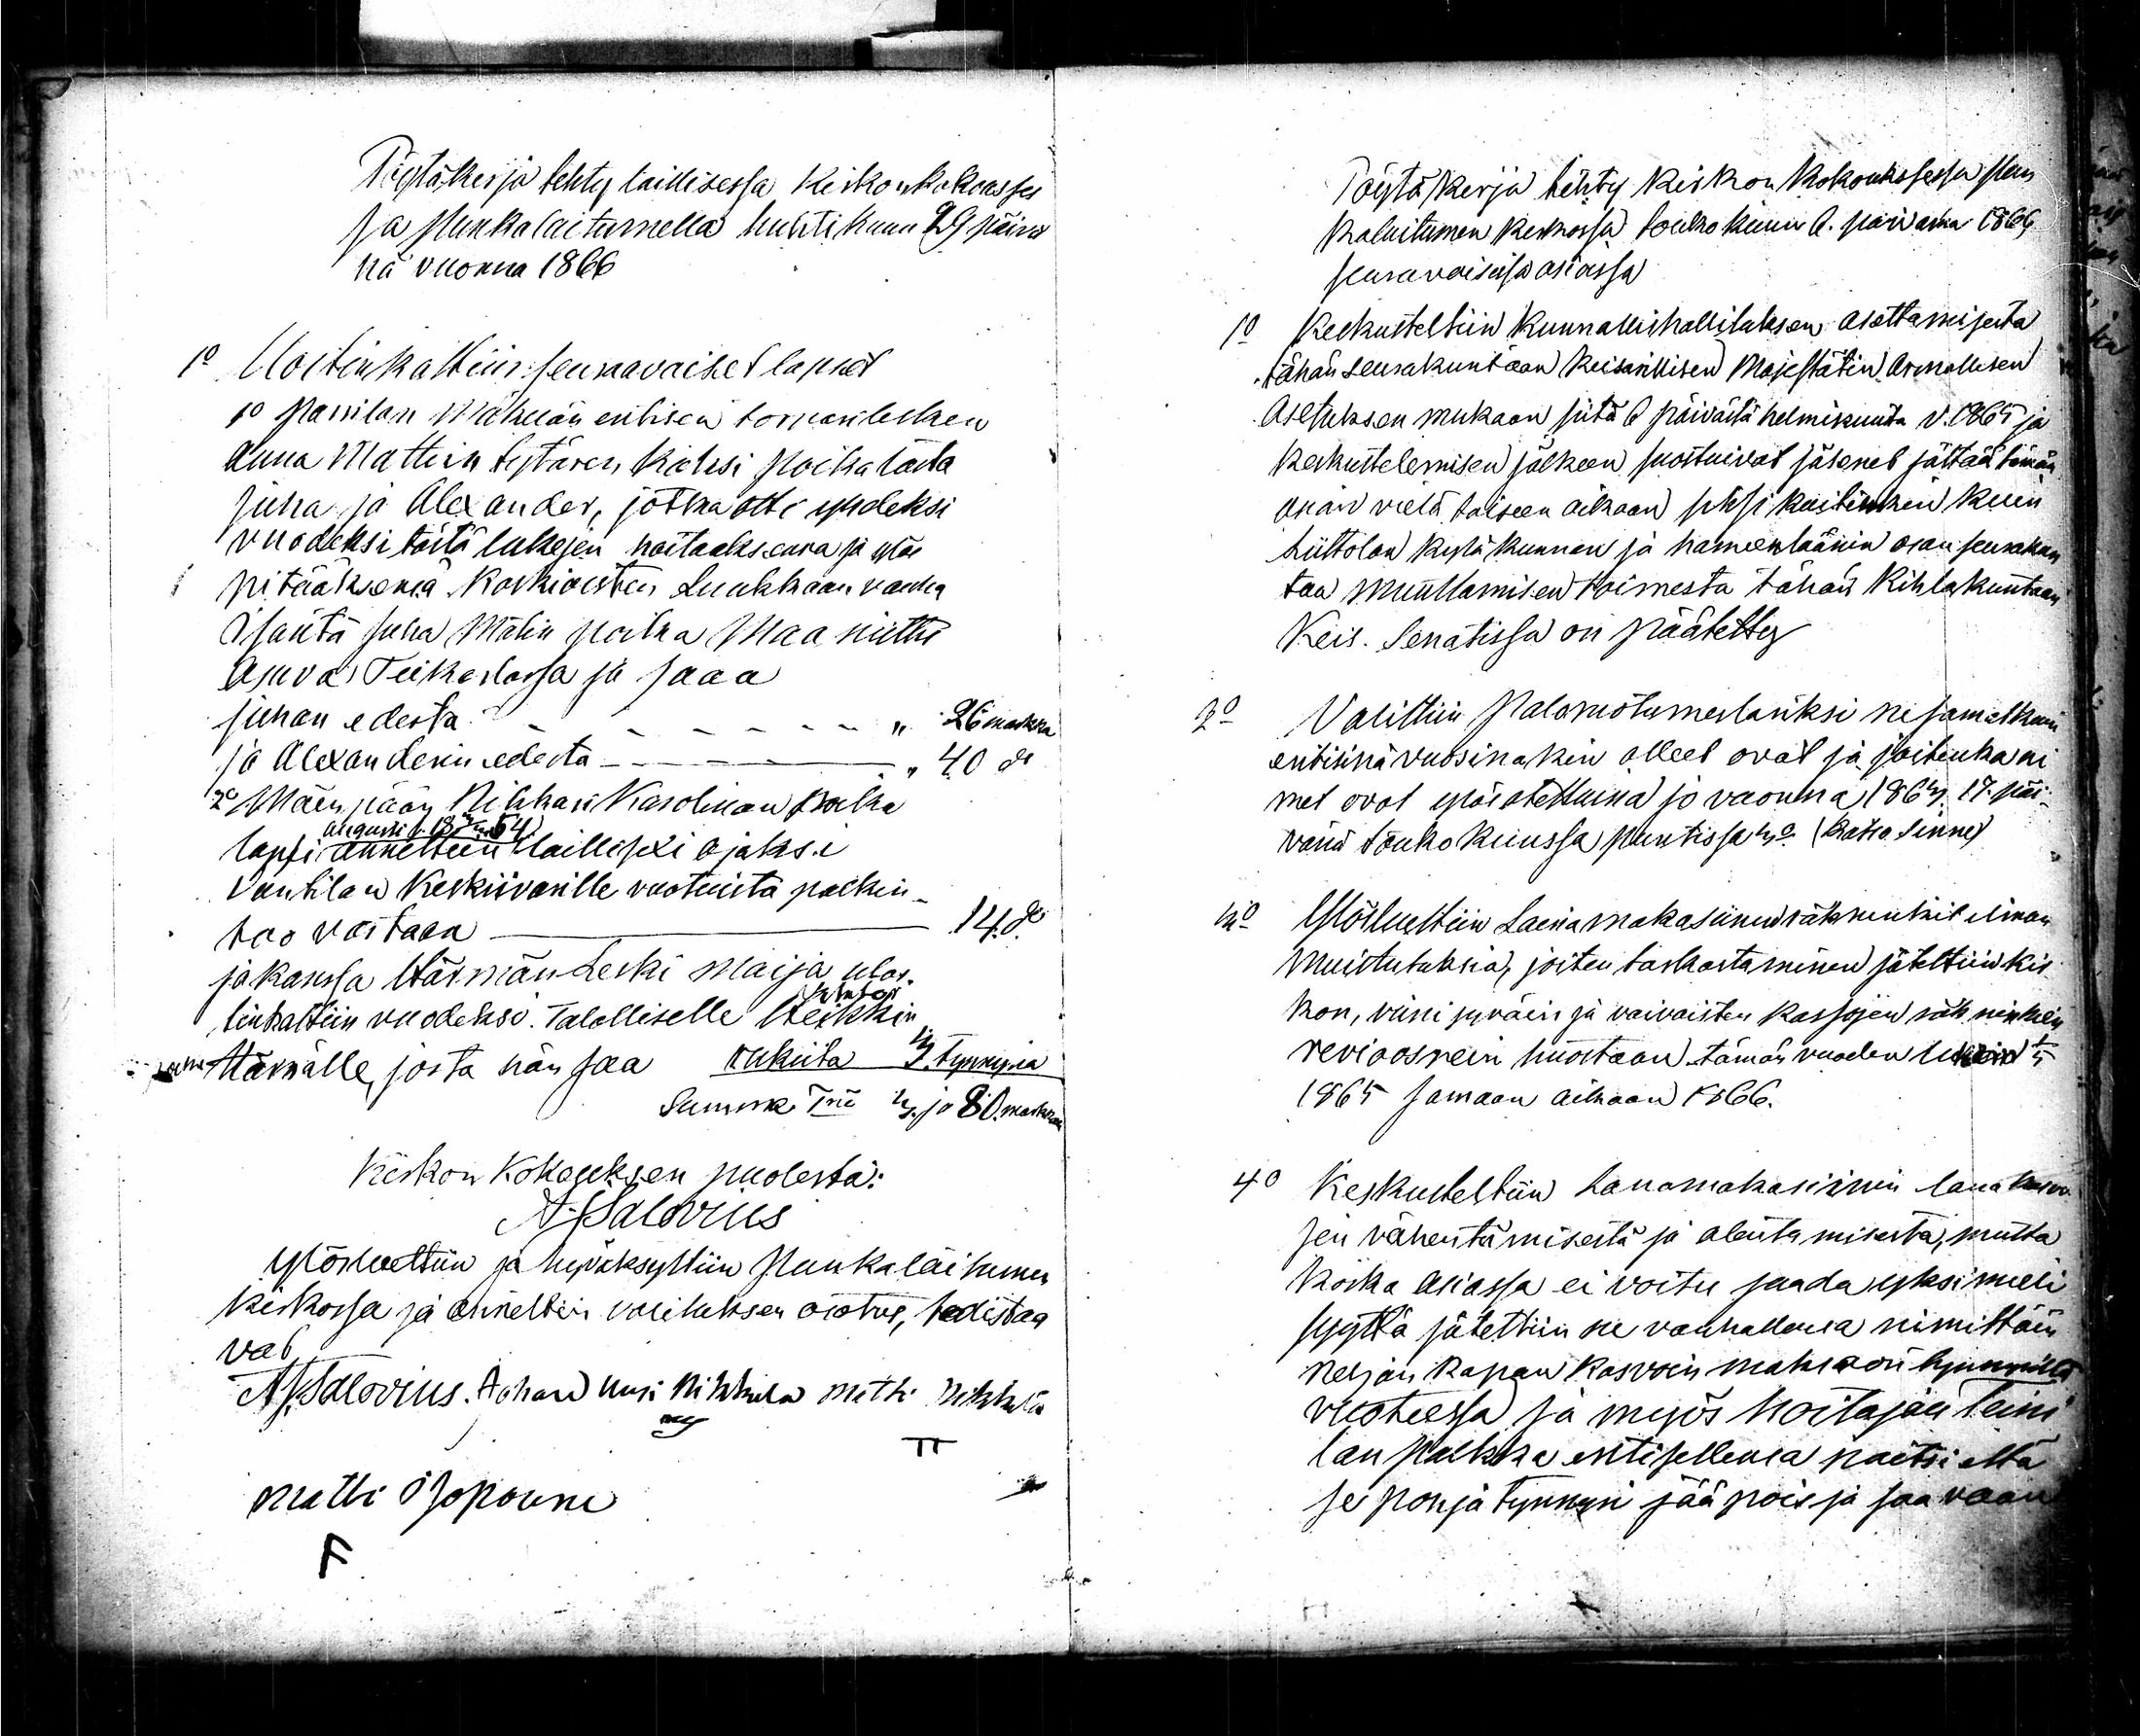 Pöytäkerja tehty laillisessa kirkonkokouses
sa Punkalaitumella huhtikuun 29 päivä
nä vuonna 1866
1o Uoitinkattiin seuraavaiset lapset
1o Parrilan Mäkelän entisen torvarilesken
Anna Mattin tytären kaksi poikalasta
Juha ja Alexander, jotka otti yhdeksi
vuodeksi tästä lukejen hoitaaksensa ja ylös
pitääksensä Koskioisten Luukkaan vanha
Isäntä Juha Matin poika Maaniittu
Asuva Teikarlassa ja saaa
Juhan edestä " 26 markka
ja Alexanderin edestä " 40 do
2o Mäenpään Nikkari Karolinan poika
lapsi annettiin laillisexi ajaksi
Vantilan Keskiivarille vuotuista palkin-
too vastaan 14 do
ja kanssa Härmän Leski Maija ulos-
tinkattiin vuodeksi. Talolliselle Heikkin
Härnälle, josta hän saa rukiita tynnyriä
Summa Tri ja 80 markkaa
Kirkon Kokouksen puolesta:
A. J. Salovius
Ylösluettiin ja hyväksyttiin Punkalaitumen
kirkossa ja annettiin valituksen osotus, todistaa
vat
A. J. Salovius. Johan Uusi Nikkula matti Nikkula
matti Isoponni
F
Pöytäkerja tehty Kirkon Kokouksessa Pun
kalaitumen kirkossa toukokuun 6. päivänä 1866
seuravaisissa asiassa
1o Keskusteltiin Kunnallishallituksen asettamisesta
tähän seurakuntaan Keisarillisen Majestätin Armollisen
Asetuksen mukaan siitä 6 päivästä helmikuuta v. 1865 ja
keskuttelemisen jälkeen suostuivat jäsenet jättää tämän
asian vielä toiseen aikaan siksi kuitinkin kuin
Liittolan kyläkunnan ja hameenläänin osan seurakun
taa muuttamisen toimesta tähän Kihlakuntaan
Keis. Senatissa on päätetty
2o Valittiin Palomötumestariksi ne samat kuin
entisinä vuosinakin olleet ovat ja joitenka ni
met ovat ylösotettuina jo vuonna 17. päi-
vänä toukokuussa puntissa (katso sinne)
3o Ylösluettiin Lainamakasiinin räkninkit ilman
muistutuksia, joiten tarkastaminen jätettiin kir
kon, viinijyväin ja vaivaisten kassojen räkninkien
revioosnein huostaan tämän vuoden
1865 samaan aikaan 1866.
4o Keskusteltiin Lanamakasiinin lana kasvo
jen vähentämisestä ja alentamisesta, mutta
koska asiassa ei voitu saada yksimieli
syyttä jätettiin ne vanhallensa nimittäin
neljän kapan kasvoin maksoon tynnyriltä
vuoteessa ja myös hoitajan Teini
län palkka entisellensä paitsi että
se pohja tynnyri jää pois ja saa vaan